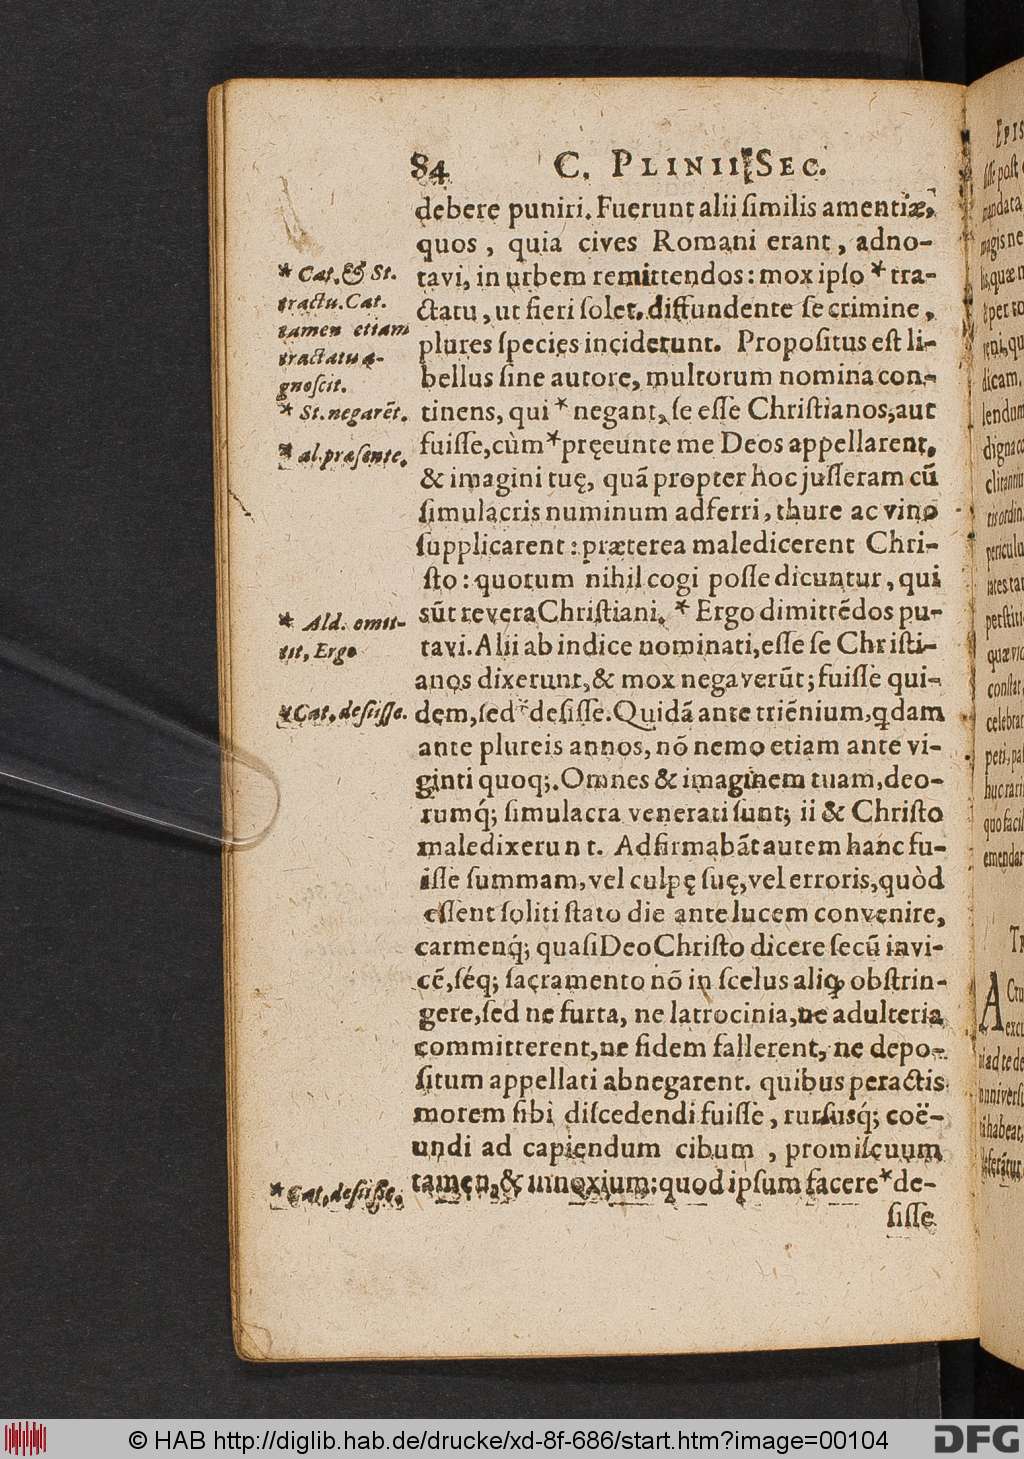 84 C. PLINII SEC.
debere puniri. Fuerunt alii ſimilis amentiæ,
quos, quia cives Romani erant, adno-
tavi, in urbem remittendos: mox ipſo * tra-
ctatu, ut fieri ſolet, diffundente ſe crimine,
plures ſpecies inciderunt. Propoſitus eſt li-
bellus ſine autore, multorum nomina con-
tinens, qui * negant, ſe eſſe Chriſtianos, aut
fuiſſe, cùm * pręeunte me Deos appellarent,
& imagini tuę, quã propter hoc juſſeram cũ
ſimulacris numinum adferri, thure ac vino
ſupplicarent: præterea maledicerent Chri-
ſto: quorum nihil cogi poſſe dicuntur, qui
sũt revera Chriſtiani. * Ergo dimittẽdos pu-
tavi. Alii ab indice nominati, eſſe ſe Chriſti-
anos dixerunt, & mox negaverũt; fuiſſe qui-
dem, ſed * deſiſſe. Quidã ante triẽnium, qdam
ante plureis annos, nõ nemo etiam ante vi-
ginti quoq;. Omnes & imaginem tuam, deo-
rumq́; ſimulacra venerati ſunt; ii & Chriſto
maledixerunt. Adfirmabãt autem hanc fu-
iſſe ſummam, vel culpę ſuę, vel erroris, quòd
eſſent ſoliti ſtato die ante lucem convenire,
carmenq́; quaſi Deo Chriſto dicere ſecũ invi-
cẽ, ſéq; ſacramento nõ in ſcelus aliqꝫ obſtrin-
gere, ſed ne furta, ne latrocinia, ne adulteria
committerent, ne fidem fallerent, ne depo-
ſitum appellati abnegarent. quibus peractis
morem ſibi diſcedendi fuiſſe, rurſusq́; coë-
undi ad capiendum cibum, promiſcuum
tamen, & innoxium: quod ipſum facere * de-
ſiſſe
* Cat. & St.
tractu. Cat.
tamen etiam
tractatu a-
gnoſcit.
* St. negarẽt.
* al. præſente.
* Ald. omit-
tit, Ergo
* Cat. deſiiſſe.
* Cat. deſiiſſe.
© HAB http://diglib.hab.de/drucke/xd-8f-686/start.htm?image=00104
DFG